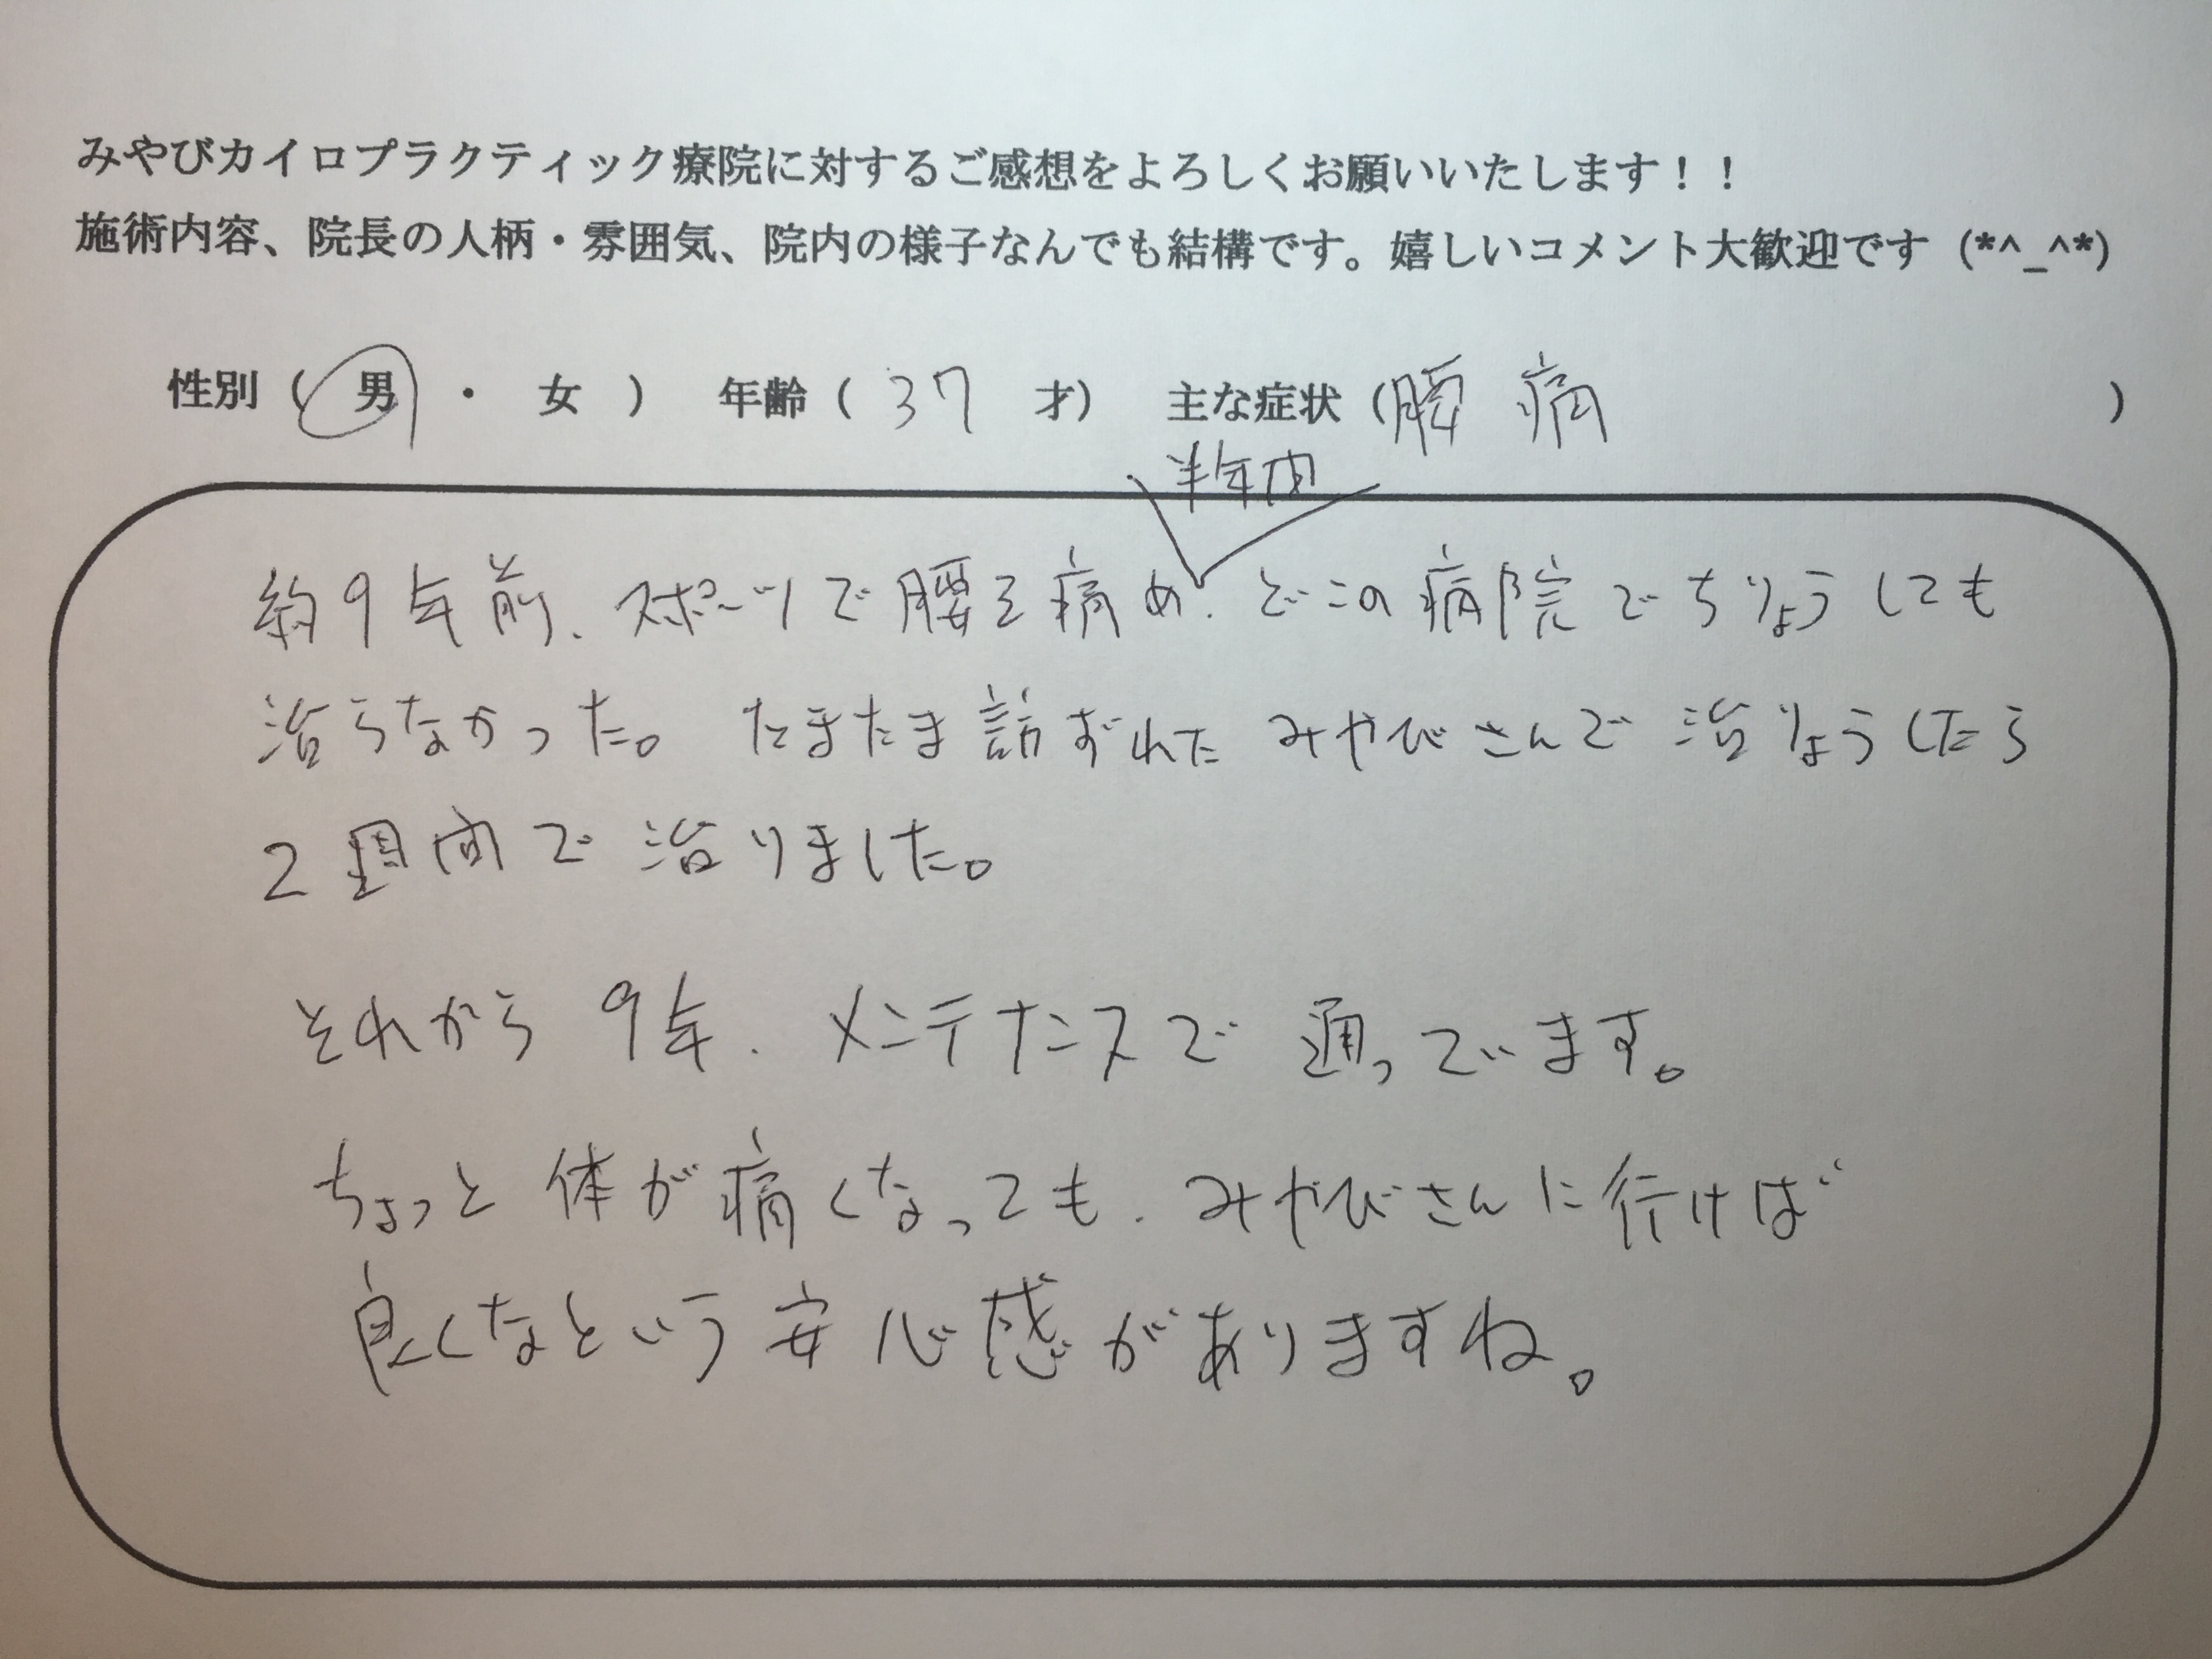 みやびカイロプラクティック療院に対するご感想をよろしくお願いいたします！！
施術内容、院長の人柄・雰囲気、院内の様子なんでも結構です。嬉しいコメント大歓迎です (*^_^*)
性別（ 男 ・ 女 ） 年齢（ 37 才） 主な症状（腰痛 ）
半年間
約9年前、スポーツで腰を痛め、どこの病院でちりょうしても
治らなかった。たまたま訪ずれたみやびさんで治りょうしたら
2週間で治りました。
それから9年、メンテナンスで通っています。
ちょっと体が痛くなっても、みやびさんに行けば
良くなという安心感がありますね。